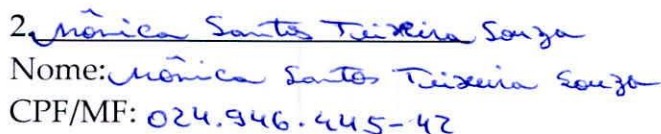 2. Mônica Santos Teixeira Souza
Nome: Mônica Santos Teixeira Souza
CPF/MF: 024.946.445-42